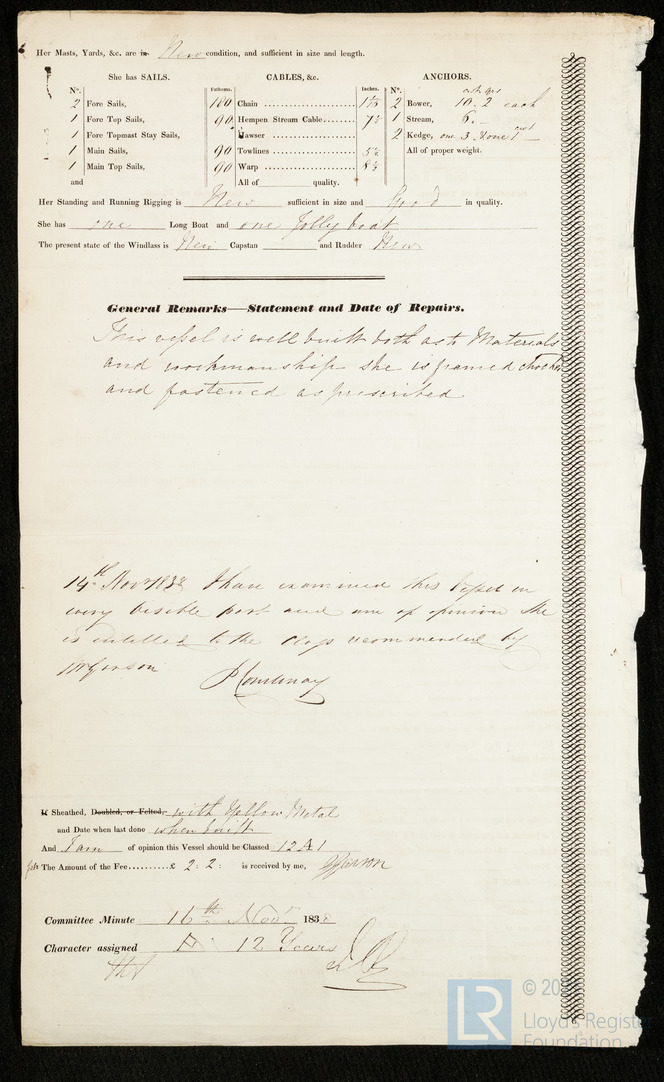 Her Masts, Yards, &c. are in New condition, and sufficient in size and length.
She has SAILS. CABLES, &c. ANCHORS.
N°. Fathoms. Inches. N°. cwt qrs
2 Fore Sails, 100 Chain 2 Bower, 10. 2 each
1 Fore Top Sails, 90 Hempen Stream Cable 7½ 1 Stream, 6. –
1 Fore Topmast Stay Sails, Hawser 2 Kedge, one 3. & one 1 cwt
1 Main Sails, 90 Towlines All of proper weight.
1 Main Top Sails, 90 Warp
and All of quality.
Her Standing and Running Rigging is New sufficient in size and Good in quality.
She has one Long Boat and one Jolly boat
The present state of the Windlass is New Capstan and Rudder New
General Remarks—Statement and Date of Repairs.
This vessel is well built both as to Materials
and workmanship she is framed
and fastened as prescribed
14th Novr 1838 I have examined this Vessel in
every visible part and am of opinion she
is entitled to the class recommended by
Mr
P Courtenay
If Sheathed, Doubled, or Felted, with Yellow Metal
and Date when last done when built
And I am of opinion this Vessel should be Classed 12 A 1
The Amount of the Fee.........£ 2 : 2 : is received by me,
Committee Minute 16th Novr 1838
Character assigned A 12 Years
LR
© 20
Lloyd's Register
Foundation